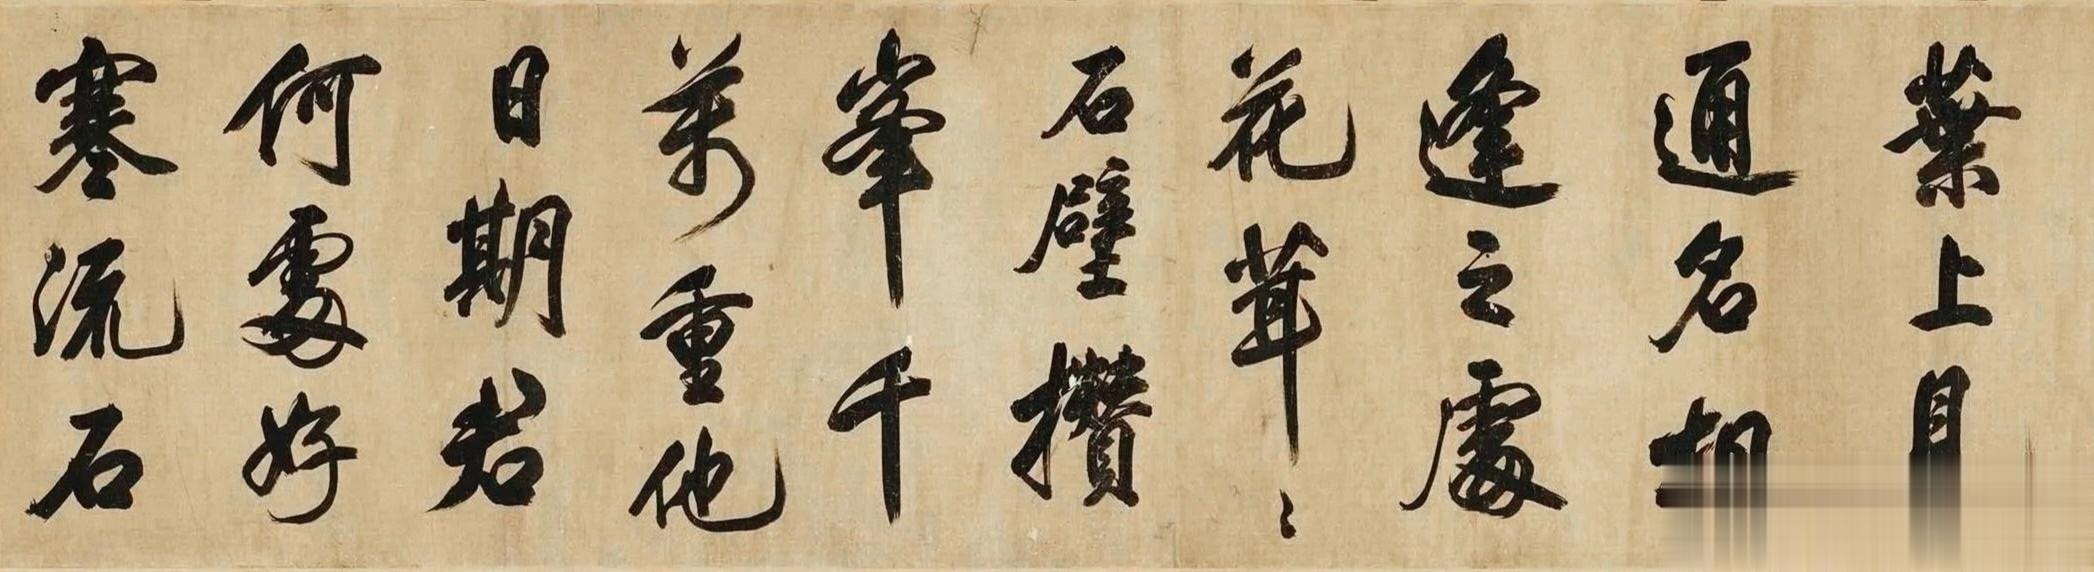 葉上
通名相
逢之處
花茸〻
石壁攢
峯千
萬重他
日期君
何處好
寒流石